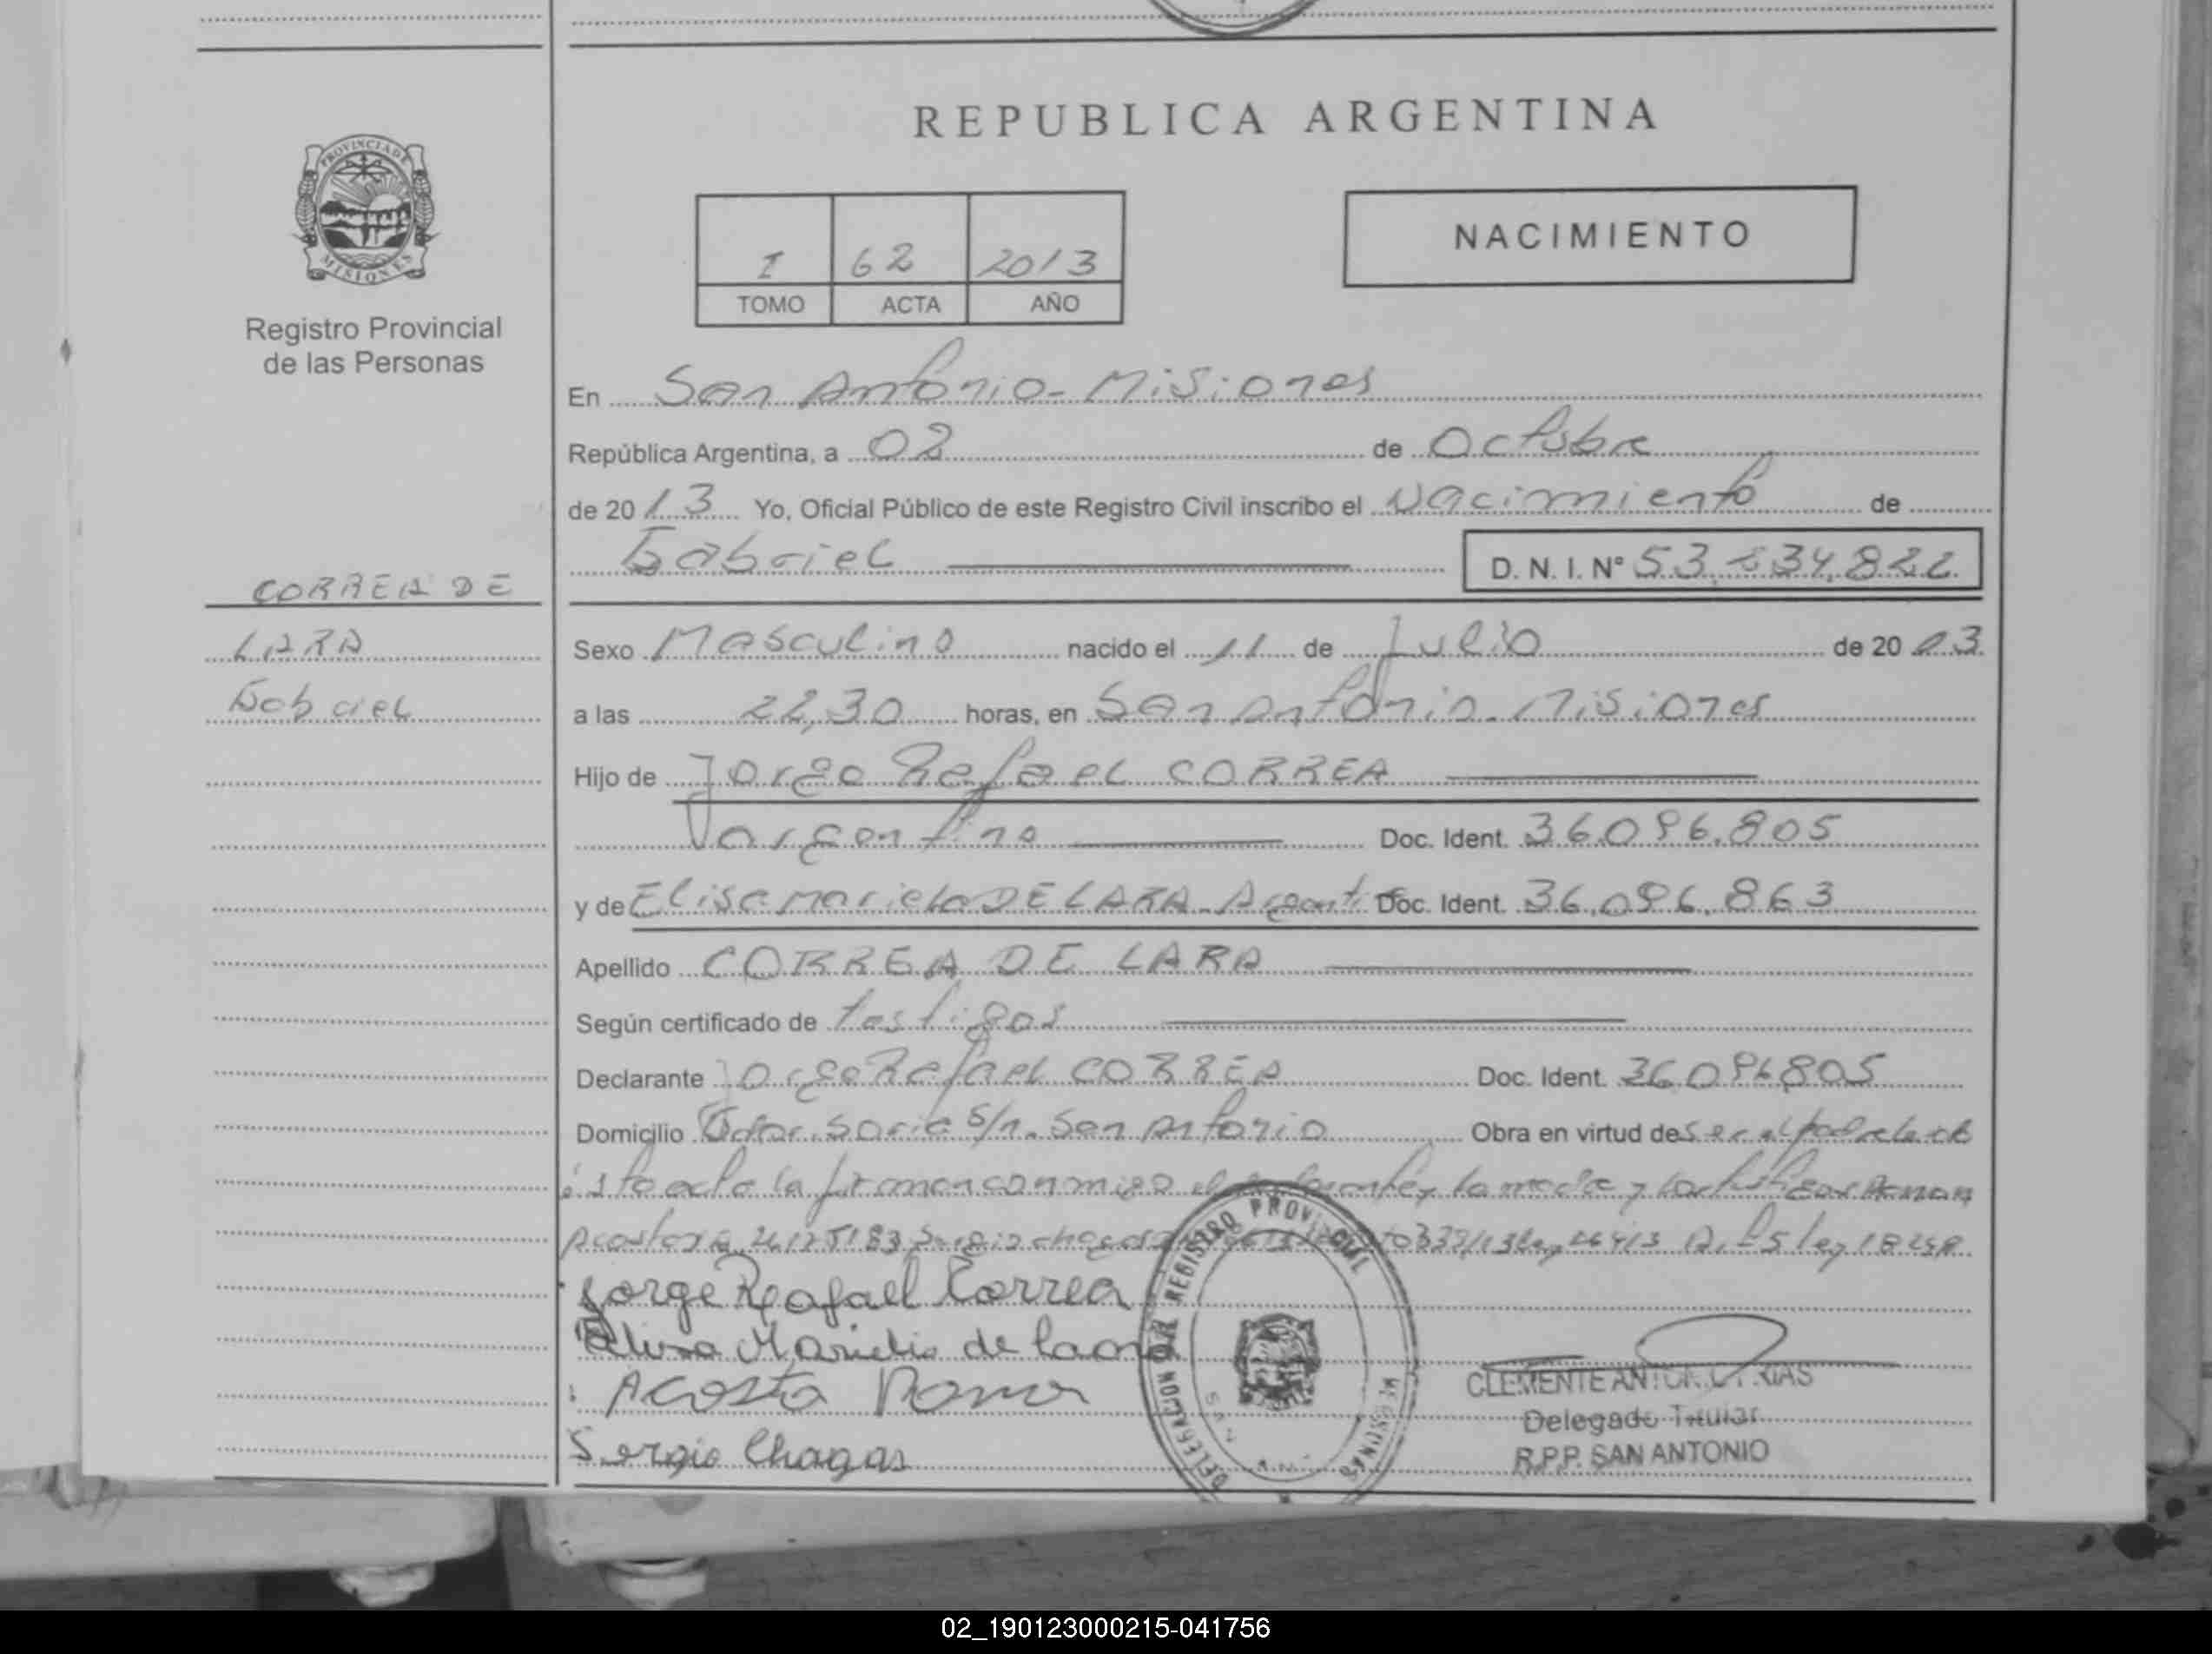 REPUBLICA ARGENTINA
PROVINCIA DE
MISIONES
Registro Provincial
de las Personas
I 62 2013
TOMO ACTA AÑO
NACIMIENTO
En San Antonio - Misiones
República Argentina, a 02 de Octubre
de 2013 Yo, Oficial Público de este Registro Civil inscribo el Nacimiento de
Gabriel D. N. I. Nº
CORREA DE
LARA
Gabriel
Sexo Masculino nacido el 11 de Julio de 20
a las 22,30 horas, en San Antonio - Misiones
Hijo de Jorge Rafael CORREA
argentino Doc. Ident. 36.096.805
y de Elisa Mariela DE LARA - Doc. Ident. 36.096.863
Apellido CORREA DE LARA
Según certificado de testigos
Declarante Jorge Rafael CORREA Doc. Ident. 36.096.805
Domicilio s/n. San Antonio Obra en virtud de ser el padre
la firman conmigo el la madre y
Acosta
Jorge Reafael Correa
de
Acosta
Sergio Chagas
DELEGACION REGISTRO PROVINCIAL
CLEMENTE
Delegado Titular
R.P.P. SAN ANTONIO
02_190123000215-041756